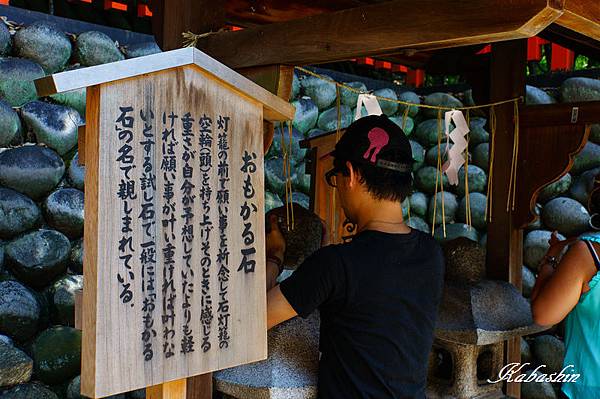 おもかる石
灯籠の前で願い事を祈念して石灯籠の
空輪(頭)を持ち上げ、そのときに感じる
重さが自分が予想していたよりも軽
ければ願い事が叶い、重ければ叶わな
いとする試し石で、一般には「おもかる
石」の名で親しまれている。
Kabashin